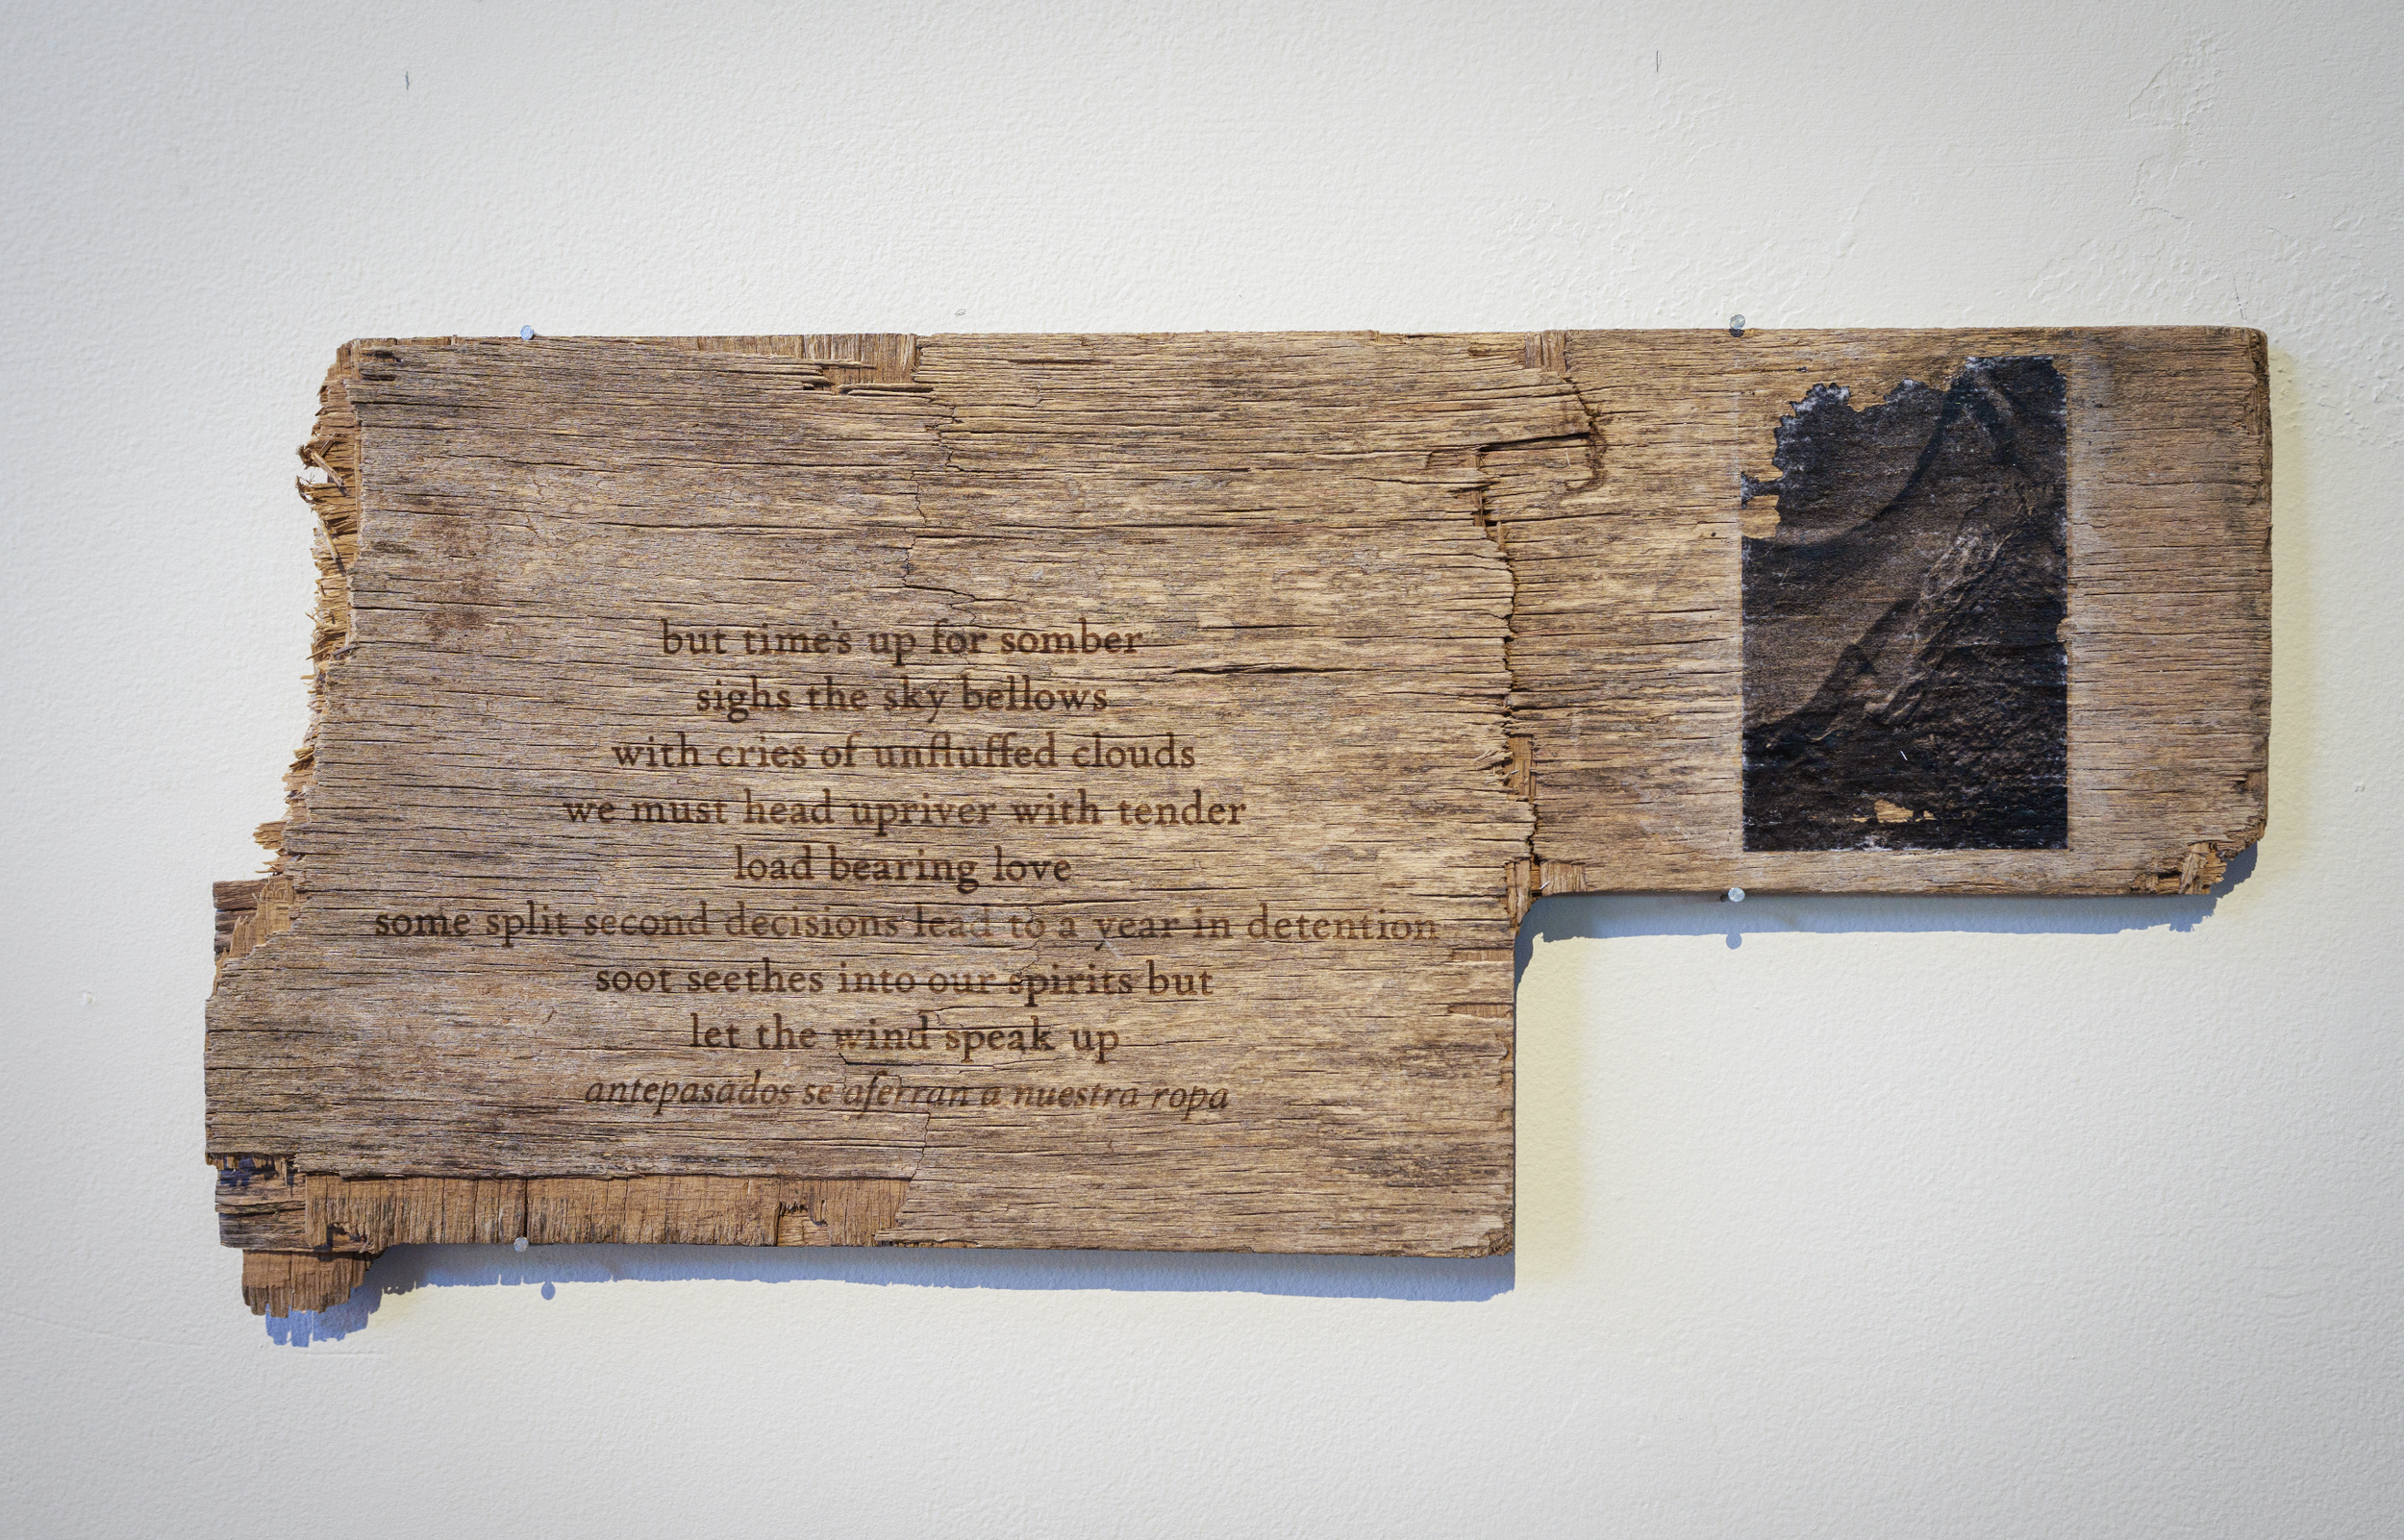 but time's up for somber
sighs the sky bellows
with cries of unfluffed clouds
we must head upriver with tender
load bearing love
some split second decisions lead to a year in detention
soot seethes into our spirits but
let the wind speak up
antepasados se aferran a nuestra ropa